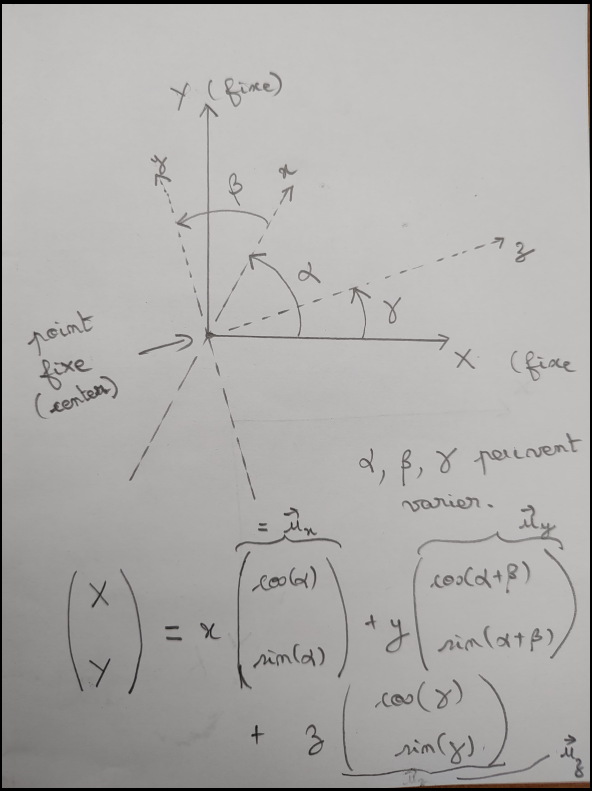 Y (fixe)
y
β
x
z
α
γ
point
fixe
(center)
X (fixe
α, β, γ peuvent
varier.
= u⃗x
u⃗y
(X Y) = x (cos(α) sin(α)) + y (cos(α+β) sin(α+β))
+ z (cos(γ) sin(γ))
u⃗z